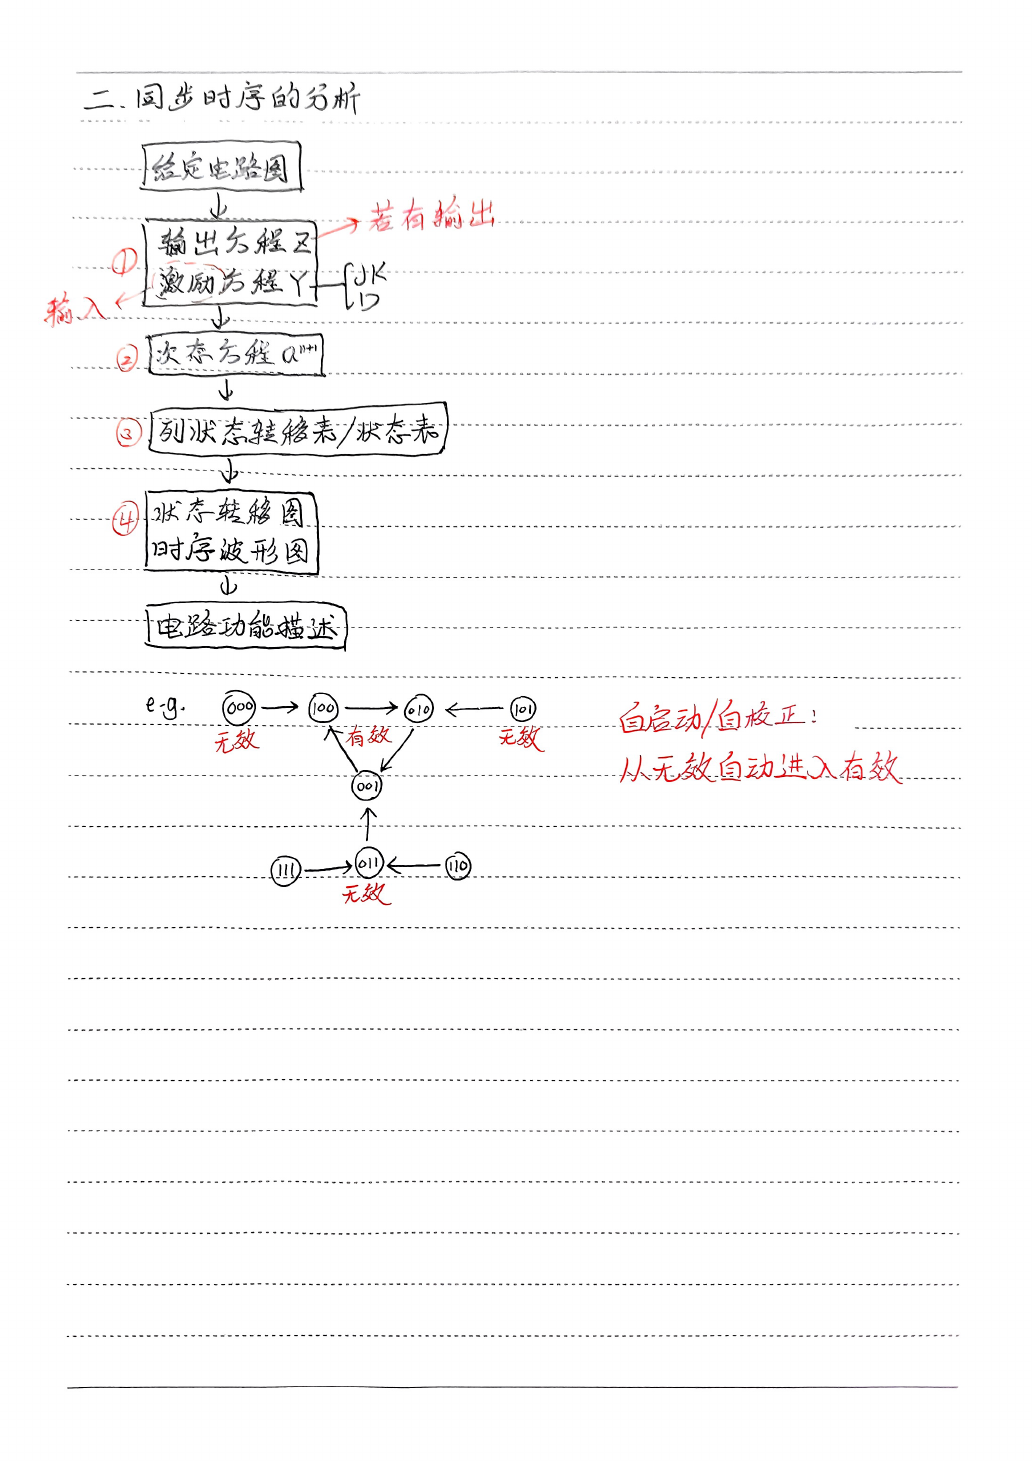 二.同步时序的分析
给定电路图
① 输出方程Z → 若有输出
输入 ← 激励方程Y { JK D
② 次态方程Qⁿ⁺¹
③ 列状态转移表/状态表
④ 状态转移图
时序波形图
电路功能描述
e.g. 000 → 100 → 010 ← 101
无效 有效 无效
001
111 → 011 ← 110
无效
自启动/自校正:
从无效自动进入有效